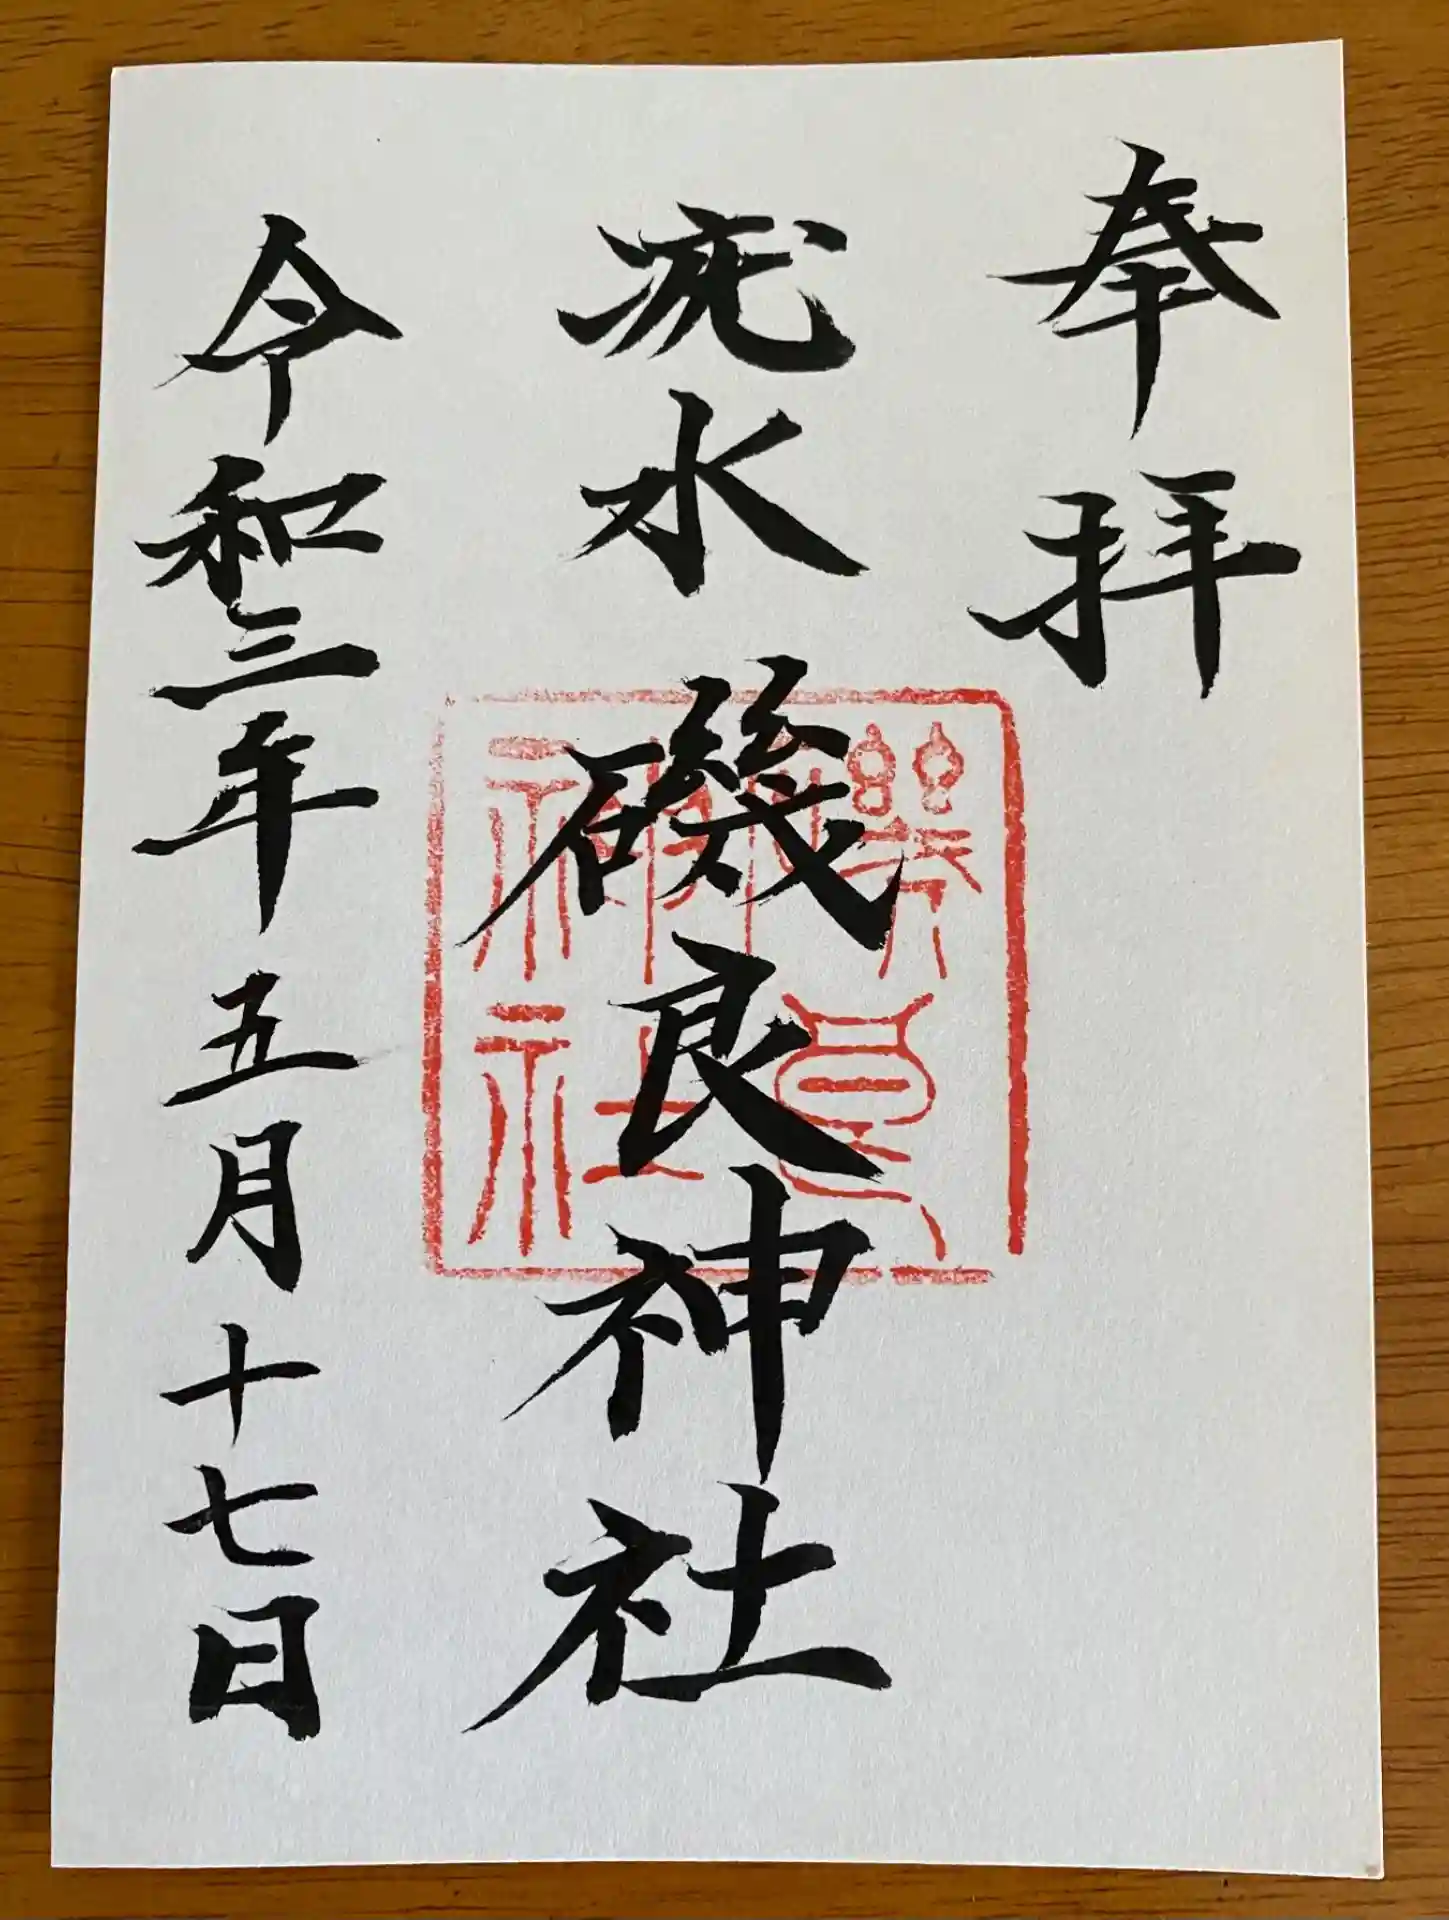 奉拝
疣水磯良神社
磯良
神社
令和三年五月十七日